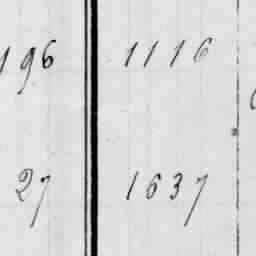 196 1116
27 1637